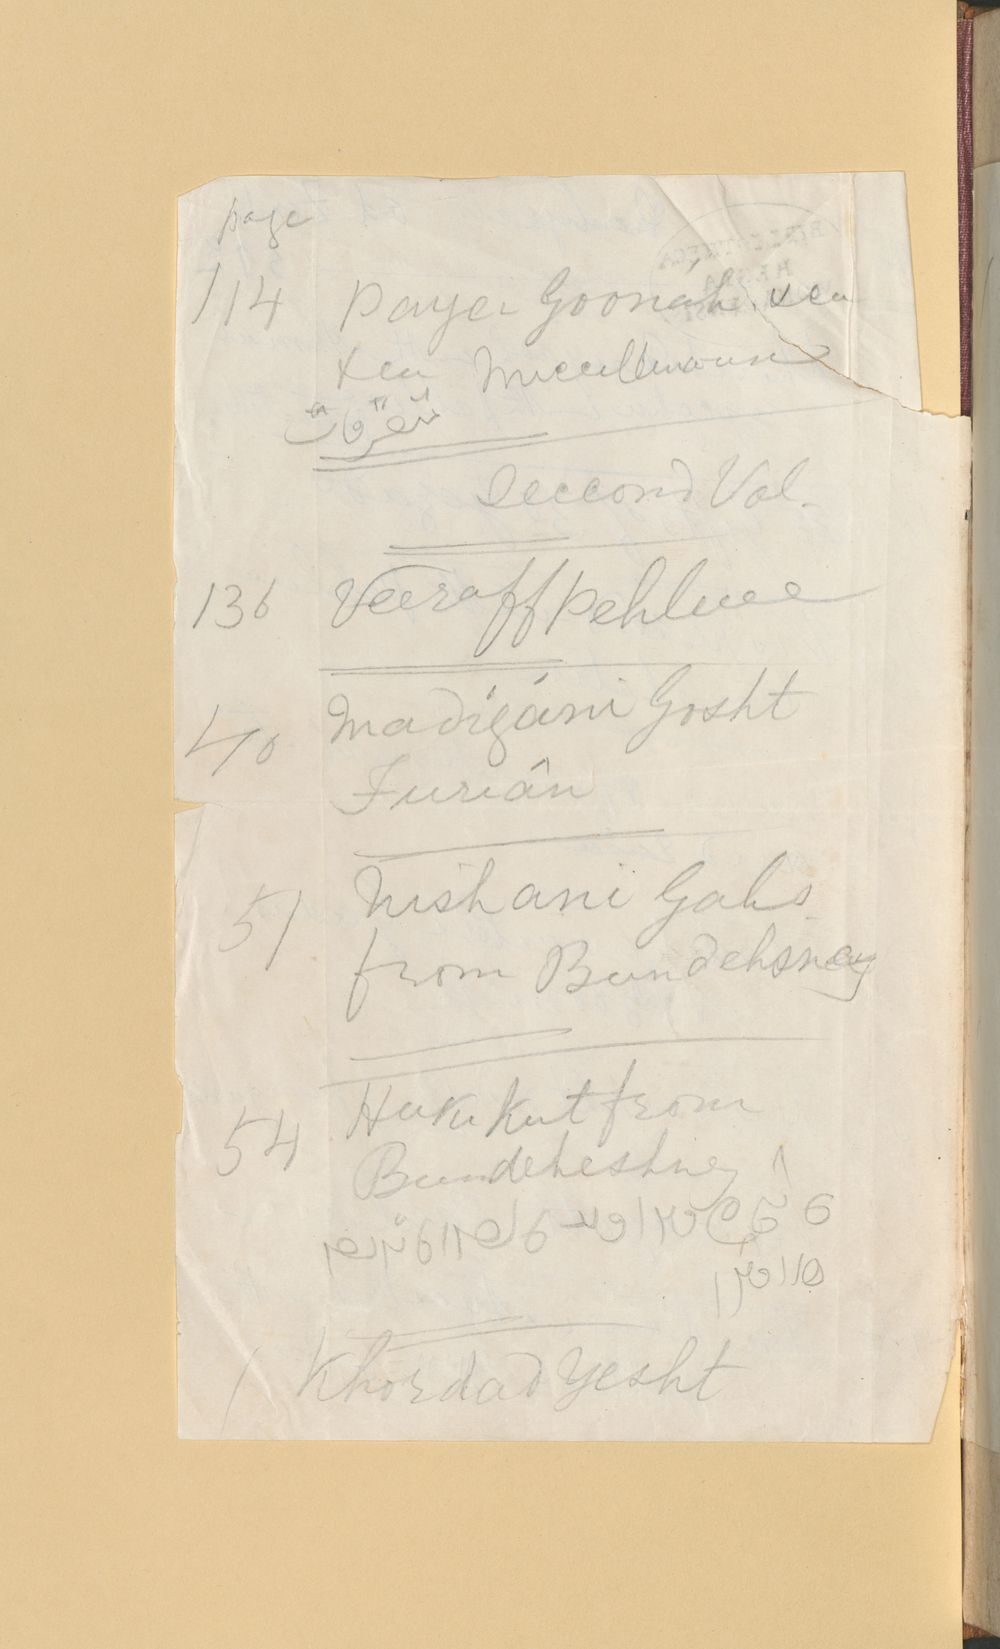 page
114 Payei Goonah. xeu
xeu Miccellmoun
متفرقات
Seccond Vol.
136 Veeraff Pehlwee
40 Madigáni Gosht
Furiân
51 Nishani Gahs
from Bundehsney
54 Hukukut from
Bundeheshney
1 Khordad Yesht